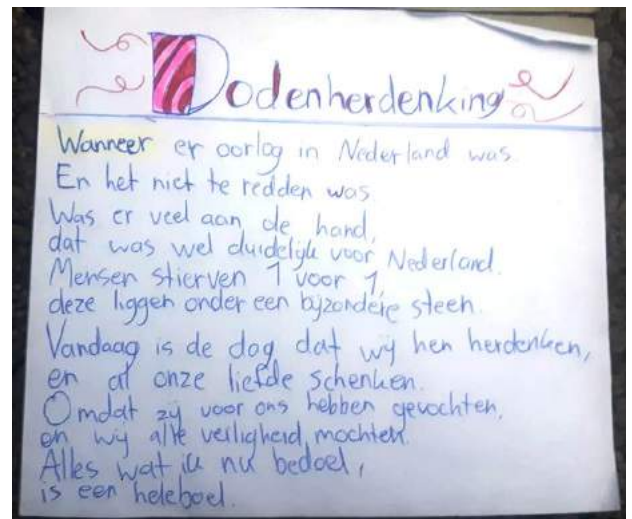 Dodenherdenking
Wanneer er oorlog in Nederland was.
En het niet te redden was
Was er veel aan de hand,
dat was wel duidelijk voor Nederland.
Mensen stierven 1 voor 1,
deze liggen onder een bijzondere steen.
Vandaag is de dag dat wij hen herdenken,
en al onze liefde schenken.
Omdat zij voor ons hebben gevochten,
en wij alle veiligheid mochten.
Alles wat ik nu bedoel,
is een heleboel.